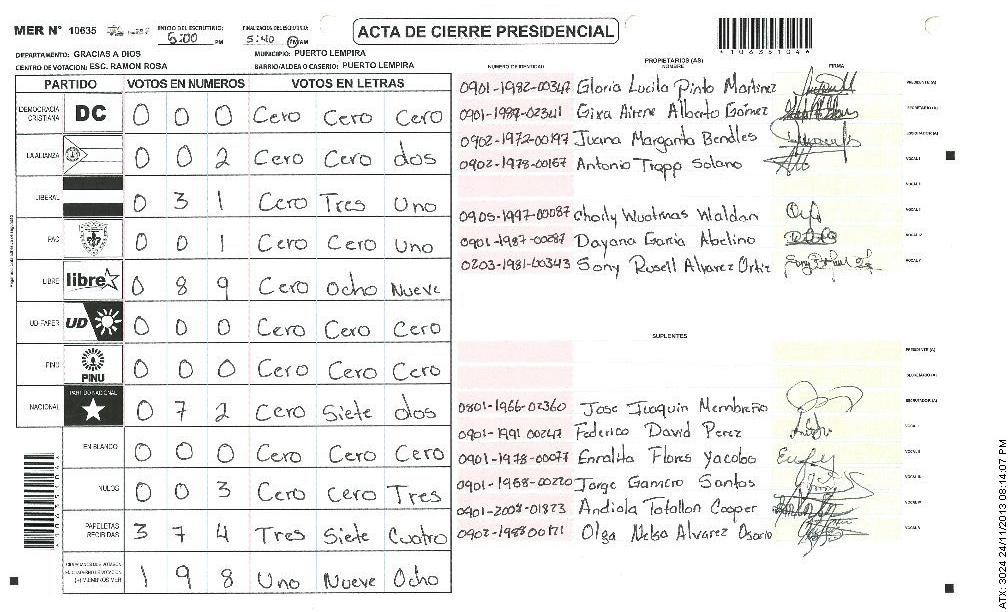 MER N° 10635 INICIO DEL ESCRUTINIO: 5:00 PM FINALIZACION DEL ESCRUTINIO: 5:40 PM AM
ACTA DE CIERRE PRESIDENCIAL
DEPARTAMENTO: GRACIAS A DIOS MUNICIPIO: PUERTO LEMPIRA
CENTRO DE VOTACION: ESC. RAMON ROSA BARRIO/ALDEA O CASERIO: PUERTO LEMPIRA
PARTIDO VOTOS EN NUMEROS VOTOS EN LETRAS
DEMOCRACIA CRISTIANA DC 0 0 0 Cero Cero Cero
LA ALIANZA 0 0 2 Cero Cero dos
LIBERAL 0 3 1 Cero Tres Uno
PAC 0 0 1 Cero Cero Uno
LIBRE libre 0 8 9 Cero Ocho Nueve
UD-FAPER UD 0 0 0 Cero Cero Cero
PINU PINU 0 0 0 Cero Cero Cero
NACIONAL PARTIDO NACIONAL 0 7 2 Cero Siete dos
EN BLANCO 0 0 0 Cero Cero Cero
NULOS 0 0 3 Cero Cero Tres
PAPELETAS RECIBIDAS 3 7 4 Tres Siete Cuatro
1 9 8 Uno Nueve Ocho
PROPIETARIOS (AS)
NUMERO DE IDENTIDAD NOMBRE FIRMA
0901-1982-00347 Gloria Lucila Pinto Martinez PRESIDENTE (A)
0901-1989-02341 Gixa Airene Alberto Gómez SECRETARIO (A)
0902-1972-00197 Juana Margarita Bendles ESCRUTADOR (A)
0902-1978-00167 Antonio Trapp Solano VOCAL I
0905-1997-00087 Charly Wuatmas Waldan
0901-1987-00287 Dayana Garcia Abelino
0203-1981-00343 Sony Rusell Alvarez Ortiz
SUPLENTES
PRESIDENTE (A)
SECRETARIO (A)
0801-1966-02360 Jose Juaquin Membreño ESCRUTADOR (A)
0901-1991 00247 Federico David Perez
0901-1978-00077 Enralita Flores Yacobo
0901-1968-00220 Jorge Gamero Santos
0901-2008-01823 Andiola Tatallon Cooper
0902-1988 00171 Olga Nelsa Alvarez Osorio
ATX: 3024 24/11/2013 08:14:07 PM